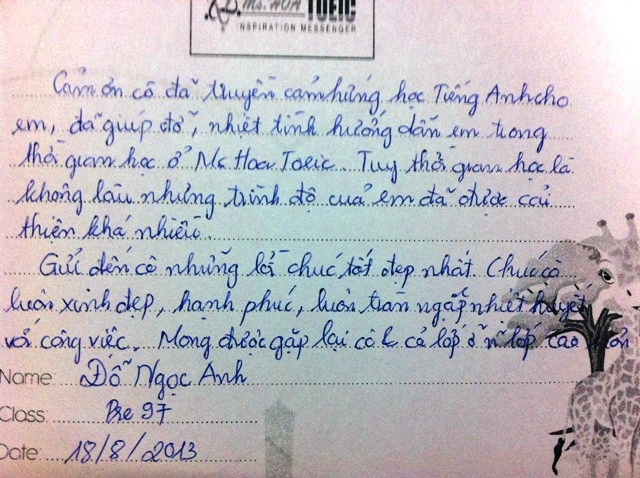 Ms. HOA TOEIC
INSPIRATION MESSENGER
Cảm ơn cô đã truyền cảm hứng học Tiếng Anh cho
em, đã giúp đỡ, nhiệt tình hướng dẫn em trong
thời gian học ở Ms Hoa Toeic. Tuy thời gian học là
không lâu nhưng trình độ của em đã được cải
thiện khá nhiều.
Gửi đến cô những lời chúc tốt đẹp nhất. Chúc cô
luôn xinh đẹp, hạnh phúc, luôn tràn ngập nhiệt huyết
với công việc. Mong được gặp lại cô & cả lớp ở n~ lớp cao hơn
Name: Đỗ Ngọc Anh
Class: Pre 97
Date: 18/8/2013